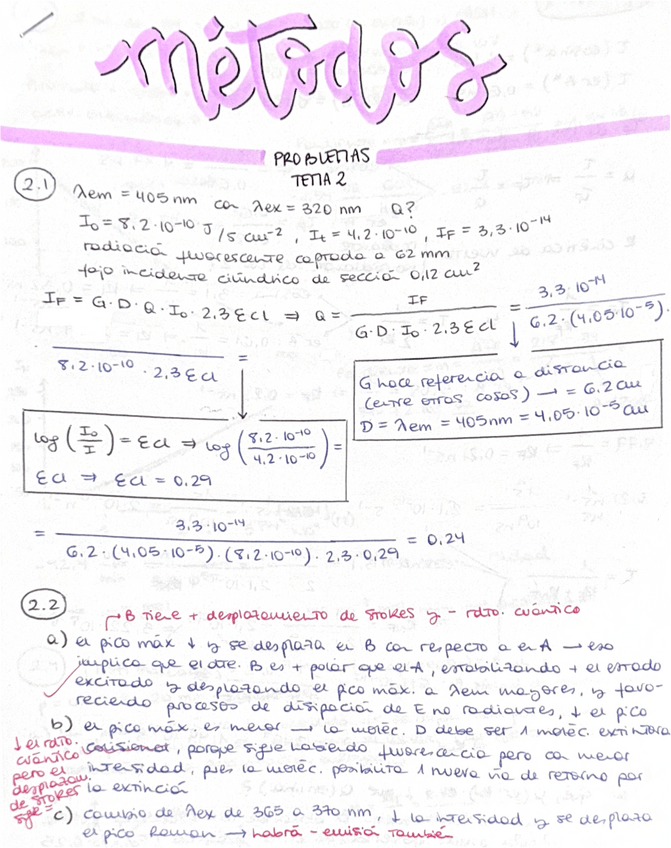 métodos
PROBLEMAS
TEMA 2
2.1 λem = 405 nm con λex = 320 nm Q?
I₀ = 8,2·10⁻¹⁰ J/s cm⁻² , It = 4,2·10⁻¹⁰ , IF = 3,3·10⁻¹⁴
radiación fluorescente captada a 62 mm
fajo incidente cilíndrico de sección 0,12 cm²
IF = G·D·Q·I₀·2,3εcl ⇒ Q = IF / (G·D·I₀·2,3εcl) = 3,3·10⁻¹⁴ / (6,2·(4,05·10⁻⁵)·
8,2·10⁻¹⁰ · 2,3εcl) =
G hace referencia a distancia
(entre otras cosas) → = 6,2 cm
D = λem = 405nm = 4,05·10⁻⁵ cm
log (I₀/I) = εcl ⇒ log (8,2·10⁻¹⁰ / 4,2·10⁻¹⁰) =
εcl ⇒ εcl = 0,29
= 3,3·10⁻¹⁴ / (6,2·(4,05·10⁻⁵)·(8,2·10⁻¹⁰)·2,3·0,29) = 0,24
2.2
→ B tiene + desplazamiento de Stokes y - rdto. cuántico
a) el pico máx ↓ y se desplaza en B con respecto a en A → eso
implica que el dte. B es + polar que el A, estabilizando + el estado
excitado y desplazando el pico máx. a λem mayores, y favo-
reciendo procesos de disipación de E no radiantes, ↓ el pico
b) el pico máx. es menor → la moléc. D debe ser 1 moléc. extintora
colisional, porque sigue habiendo fluorescencia pero con menor
intensidad, pues la moléc. posibilita 1 nueva vía de retorno por
la extinción
↓ el rdto.
cuántico
pero el
desplazam.
de Stokes
sigue =
c) cambio de λex de 365 a 370 nm, ↓ la intensidad y se desplaza
el pico Raman → habrá - emisión también